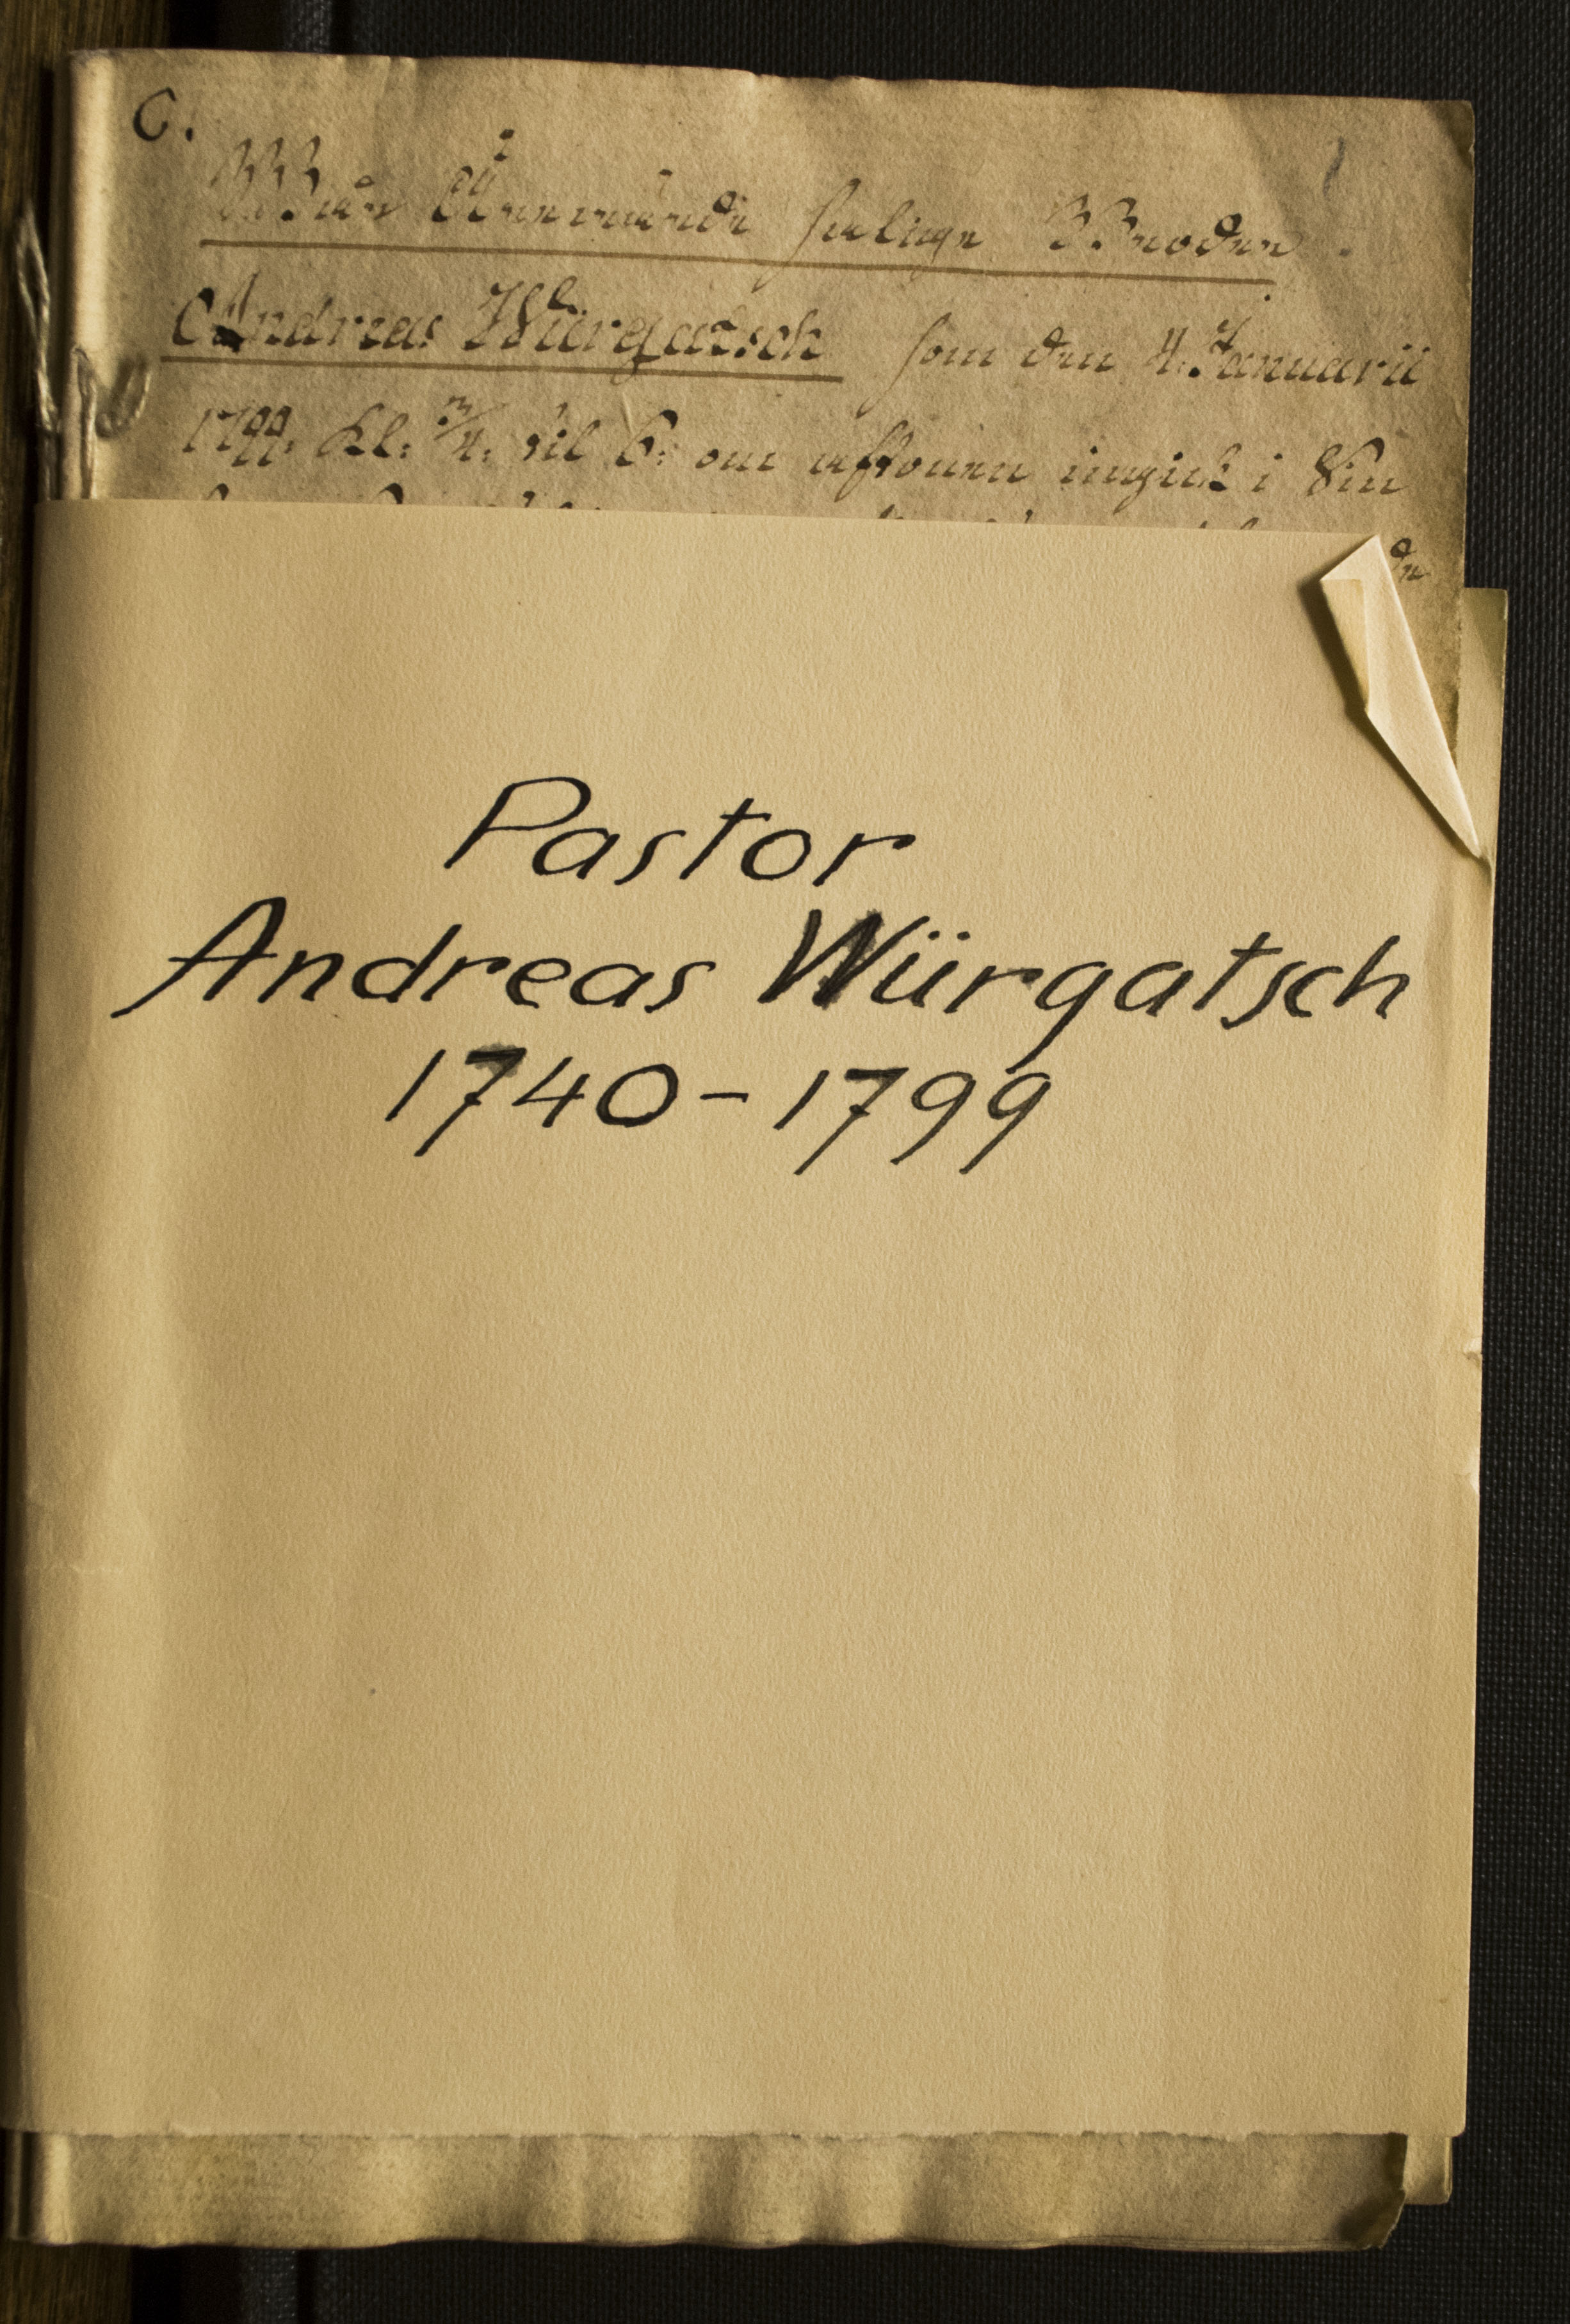 C.
Wår Ährewürde saliga Broder
Andreas Würgatsch som den 4. Januarii
1799. Kl: 3/4. til 6: om aftonen ingick i Sin
Pastor
Andreas Würgatsch
1740-1799